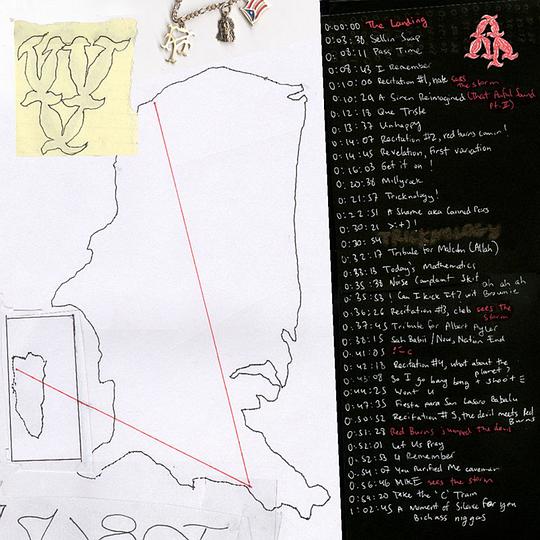 0:00:00 The Landing
0:03:38 Sellin Soap
0:08:11 Pass Time
0:08:43 I Remember
0:10:00 Recitation #1, nak sees the storm
0:10:29 A Siren Reimagined (That Awful Sound Pt. II)
0:12:18 Que Triste
0:13:37 Unhappy
0:14:07 Recitation #2, red burns comin!
0:14:45 Revelation, first variation
0:16:03 Get it on!
0:20:38 Millyrock
0:21:57 Tricknology!
0:22:51 A Shame aka Canned Pears
0:30:21 >:+)!
0:30:54
0:32:17 Tribute for Malcolm (Allah)
0:33:13 Today's Mathematics
0:35:38 Noise Complaint Skit
0:35:53 ! Can I Kick It? wit Brownie ah ah ah
0:36:26 Recitation #3, cleb sees the storm
0:37:45 Tribute for Albert Ayler
0:38:15 Sah Babii / New, Nation End
0:41:05
0:42:18 Recitation #4, what about the planet?
0:43:08 So I go bang bang + shoot
0:44:25 Want U
0:47:35 Fiesta para San Lazaro Babalu
0:50:52 Recitation #5, the devil meets Red Burns
0:51:28 Red Burns jumped the devil
0:52:01 Let Us Pray
0:52:53 U Remember
0:54:07 You Purified Me caveman
0:56:46 MIKE sees the storm
0:59:20 Take the 'C' Train
1:02:45 A Moment of Silence for you Bichass niggas